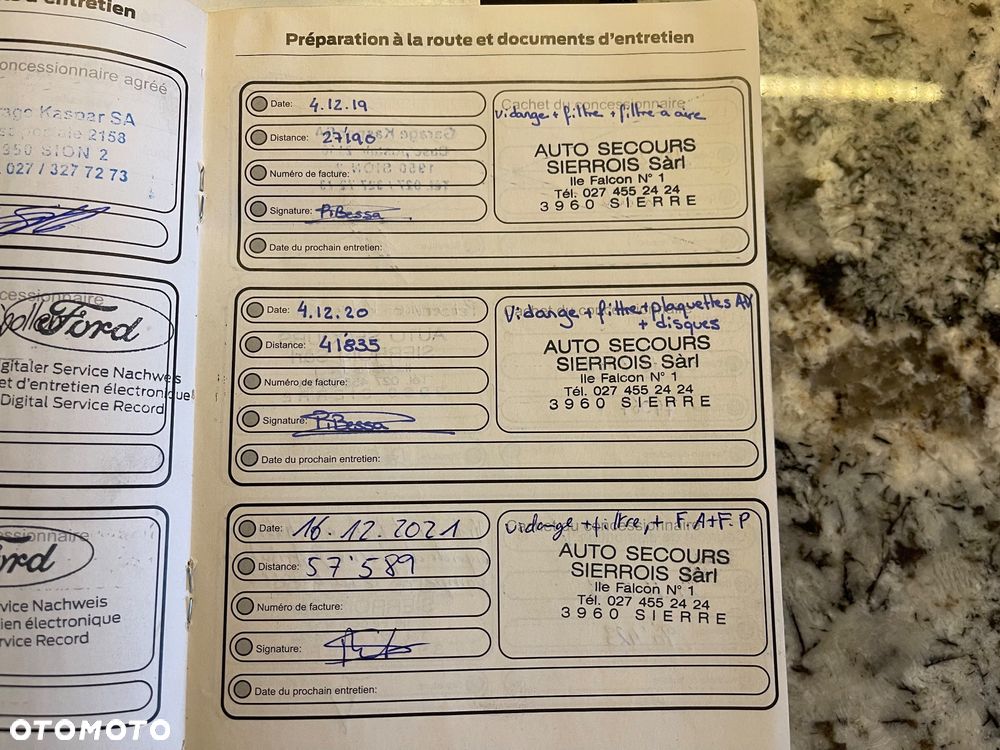 d'entretien
concessionnaire agréé
Garage Kaspar SA
2158
1950 SION 2
027 / 327 72 73
concessionnaire
Ford
Digitaler Service Nachweis
et d'entretien électronique
Digital Service Record
Ford
Service Nachweis
électronique
Service Record
Préparation à la route et documents d'entretien
Date: 4.12.19
Distance: 27190
Numéro de facture:
Signature: PiBessa
Date du prochain entretien:
Cachet du concessionnaire:
Vidange + filtre + filtre à aire
AUTO SECOURS
SIERROIS Sàrl
Ile Falcon N° 1
Tél. 027 455 24 24
3960 SIERRE
Date: 4.12.20
Distance: 41835
Numéro de facture:
Signature: PiBessa
Date du prochain entretien:
Vidange + filtre + plaquettes AV
+ disques
AUTO SECOURS
SIERROIS Sàrl
Ile Falcon N° 1
Tél. 027 455 24 24
3960 SIERRE
Date: 16.12.2021
Distance: 57'589
Numéro de facture:
Signature:
Date du prochain entretien:
Vidange + filtre, + F.A+F.P
AUTO SECOURS
SIERROIS Sàrl
Ile Falcon N° 1
Tél. 027 455 24 24
3960 SIERRE
OTOMOTO